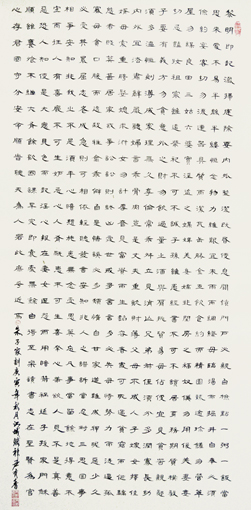 黎明即起灑掃庭除要內外整潔既昏便息關鎖門戶必親自檢點一粥一飯當
思來處不易半絲半縷恒念物力維艱宜未雨而綢繆毋臨渴而掘井自奉必須
儉約宴客切勿留連器具質而潔瓦缶勝金玉飲食約而精園蔬愈珍饈勿營華
屋勿謀良田三姑六婆實淫盜之媒婢美妾嬌非閨房之福奴僕勿用俊美妻妾
切忌艷妝祖宗雖遠祭祀不可不誠子孫雖愚經書不可不讀居身務期質樸教
子要有義方勿貪意外之財勿飲過量之酒與肩挑貿易勿佔便宜見貧苦親鄰
須多溫恤刻薄成家理無久享倫常乖舛立見消亡兄弟叔侄須分多潤寡長幼
內外宜法肅辭嚴聽婦言乖骨肉豈是丈夫重資財薄父母不成人子嫁女擇佳
婿毋索重聘娶媳求淑女毋計厚奩見富貴而生諂容者最可恥遇貧窮而作驕態者
賤莫甚居家戒爭訟訟則終凶處世戒多言言多必失毋恃勢力而凌逼孤寡
毋貪口腹而恣殺生禽乖僻自是悔誤必多頹惰自甘家道難成狎昵惡少久必
受其累屈志老成急則可相依輕聽發言安知非人之譖訴當忍耐三思因事相
爭焉知非我之不是須平心暗想施惠無念受恩莫忘凡事當留餘地得意不
宜再往人有喜慶不可生妒忌心人有禍患不可生喜幸心善欲人見不是真善
惡恐人知便是大惡見色而起淫心報在妻女匿怨而用暗箭禍延子孫家門和
順雖饔飧不繼亦有餘歡國課早完即囊橐無餘自得至樂讀書志在聖賢為官
心存君國豈計身家守分安命順時聽天為人若此庶乎近焉
朱子家訓庚寅年